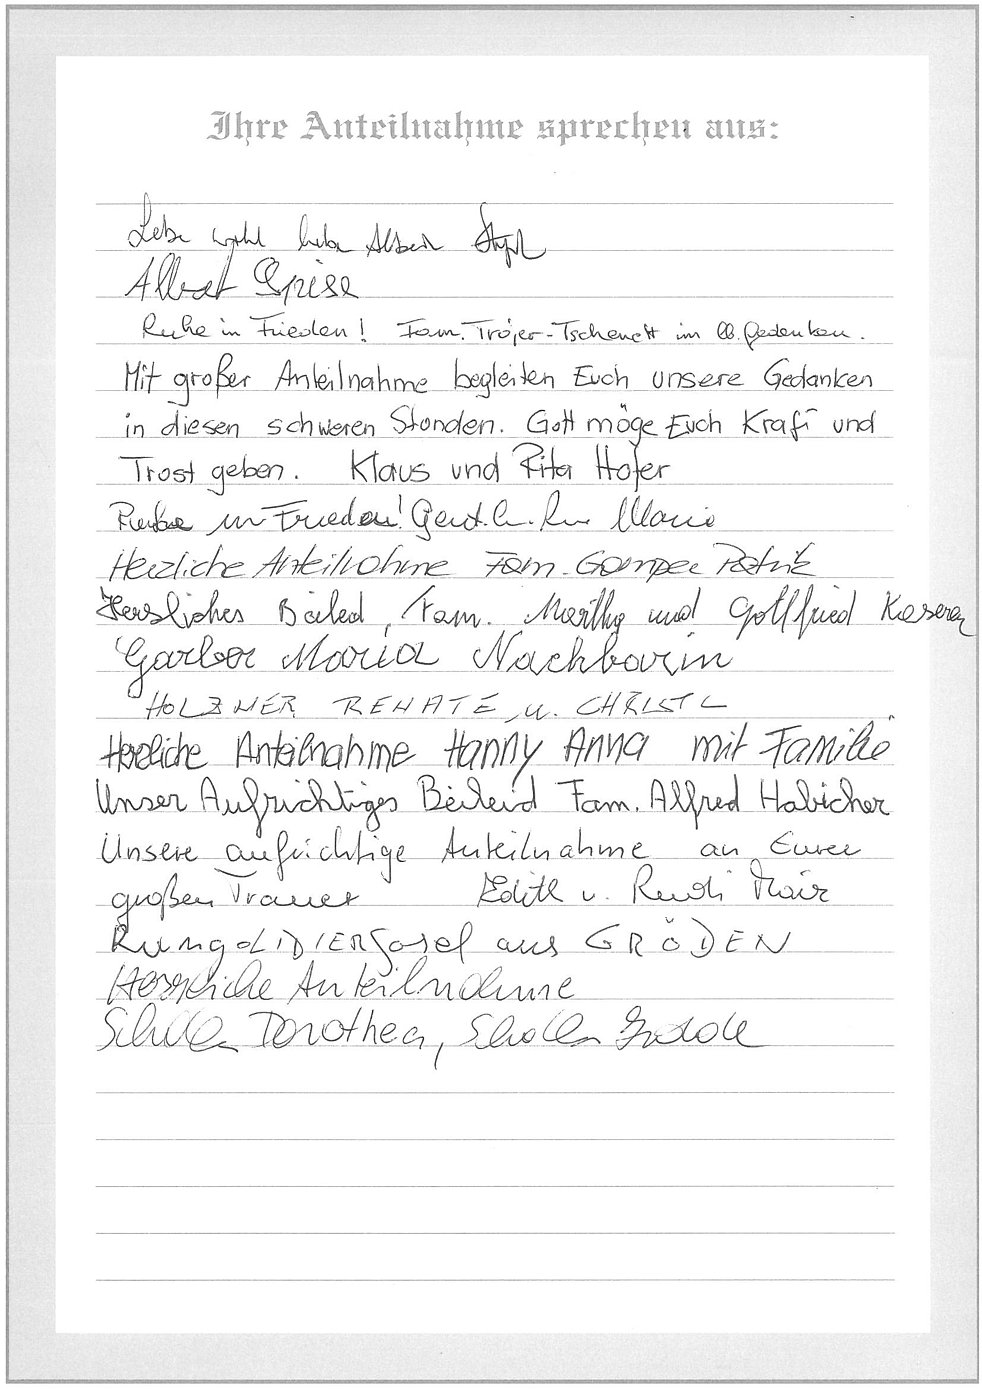 Ihre Anteilnahme sprechen aus:
Lebe wohl lieber Albert
Albert
Ruhe in Frieden! Fam. Trojer-Tschenett im lb. Gedenken.
Mit großer Anteilnahme begleiten Euch unsere Gedanken
in diesen schweren Stunden. Gott möge Euch Kraft und
Trost geben. Klaus und Rita Hofer
Ruhe in Frieden! Maria
Herzliche Anteilnahme Fam. Gamper Patrik
Herzliches Beileid, Fam. und Gottfried Kaserer
Garber Maria Nachbarin
HOLZNER RENATE u. CHRISTL
Herzliche Anteilnahme Hanny Anna mit Familie
Unser Aufrichtiges Beileid Fam. Alfred Habicher
Unsere aufrichtige Anteilnahme an Eurer
großen Trauer Edith u. Rudi Mair
RungalDIER Josef aus GRÖDEN
Herzliche Anteilnahme
Dorothea,